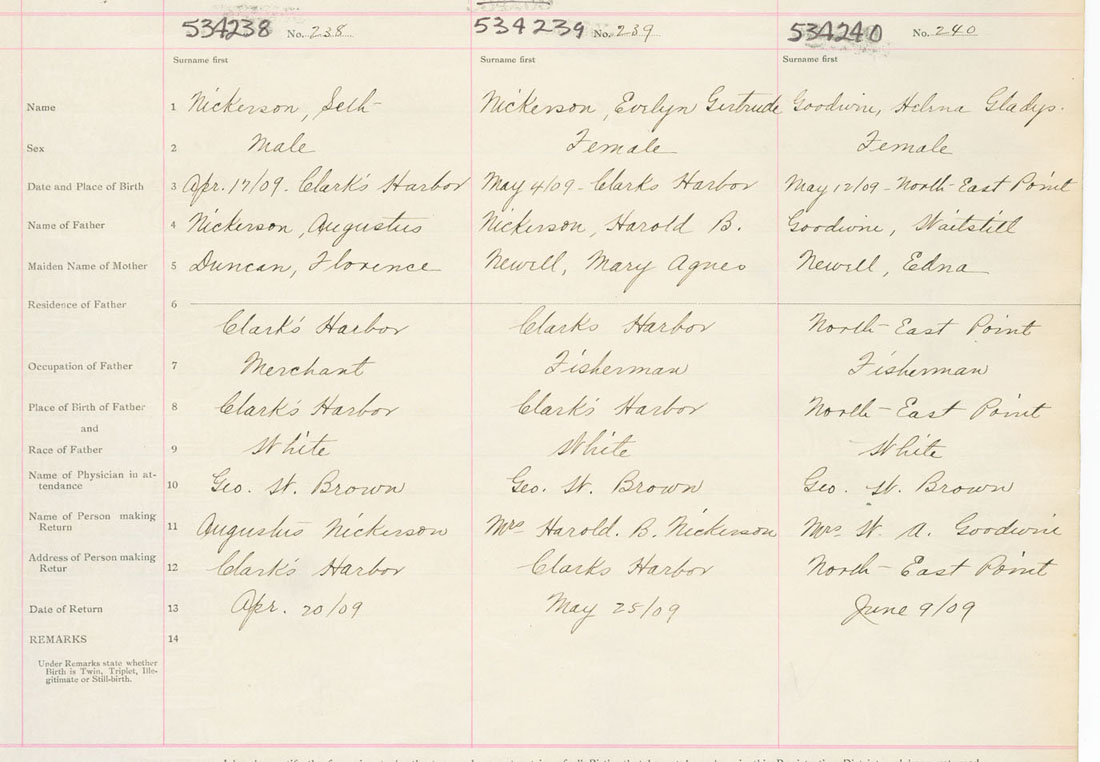 534238 No. 238 534239 No. 239 534240 No. 240
Surname first Surname first Surname first
Name 1 Nickerson, Seth Nickerson, Evelyn Gertrude Goodwine, Helena Gladys.
Sex 2 Male Female Female
Date and Place of Birth 3 Apr. 17/09 - Clark's Harbor May 4/09 - Clarks Harbor May 12/09 - North-East Point
Name of Father 4 Nickerson, Augustus Nickerson, Harold B. Goodwine, Waitstill
Maiden Name of Mother 5 Duncan, Florence Newell, Mary Agnes Newell, Edna
Residence of Father 6
Clark's Harbor Clarks Harbor North-East Point
Occupation of Father 7 Merchant Fisherman Fisherman
Place of Birth of Father 8 Clark's Harbor Clark's Harbor North-East Point
and
Race of Father 9 White White White
Name of Physician in at-
tendance 10 Geo. W. Brown Geo. W. Brown Geo. W. Brown
Name of Person making
Return 11 Augustus Nickerson Mrs Harold. B. Nickerson Mrs W. A. Goodwine
Address of Person making
Retur 12 Clark's Harbor Clarks Harbor North-East Point
Date of Return 13 Apr. 20/09 May 25/09 June 9/09
REMARKS 14
Under Remarks state whether
Birth is Twin, Triplet, Ille-
gitimate or Still-birth.